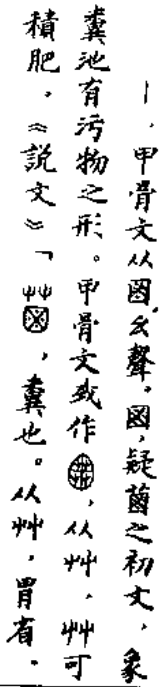 ｜，甲骨文从𡇒，幺聲。𡇒，疑菌之初文，象
糞池有污物之形。甲骨文或作，从艸，艸可
積肥。《説文》「，糞也。从艸，胃省。